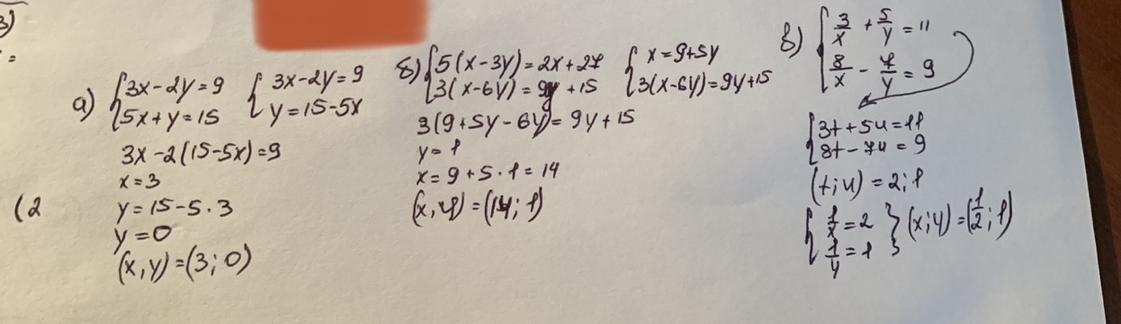 3)
=
(2
а) {3x-2y=9 {3x-2y=9
{5x+y=15 {y=15-5x
3x-2(15-5x)=9
x=3
y=15-5·3
y=0
(x,y)=(3;0)
б) {5(x-3y)=2x+27 {x=9+5y
{3(x-6y)=9y+15 {3(x-6y)=9y+15
3(9+5y-6y)=9y+15
y=1
x=9+5·1=14
(x,y)=(14;1)
в) {3/x+5/y=11
{8/x-7/y=9
{3t+5u=11
{8t-7u=9
(t;u)=2;1
{1/x=2 } (x;y)=(1/2;1)
{1/y=1 }